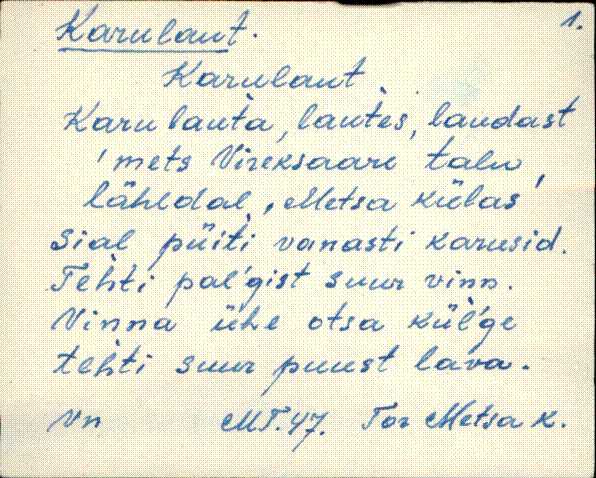 Karulaut. 1.
Karulaut
Karulauta, lautes, laudast
'mets Vireksaare talu
lähedal, Metsa külas
Sial püiti vanasti karusid.
Tehti pal'gist suur vinn.
Vinna ühe otsa kül'ge
tehti suur puust lava.
Vn MT.47. Tor Metsa k.